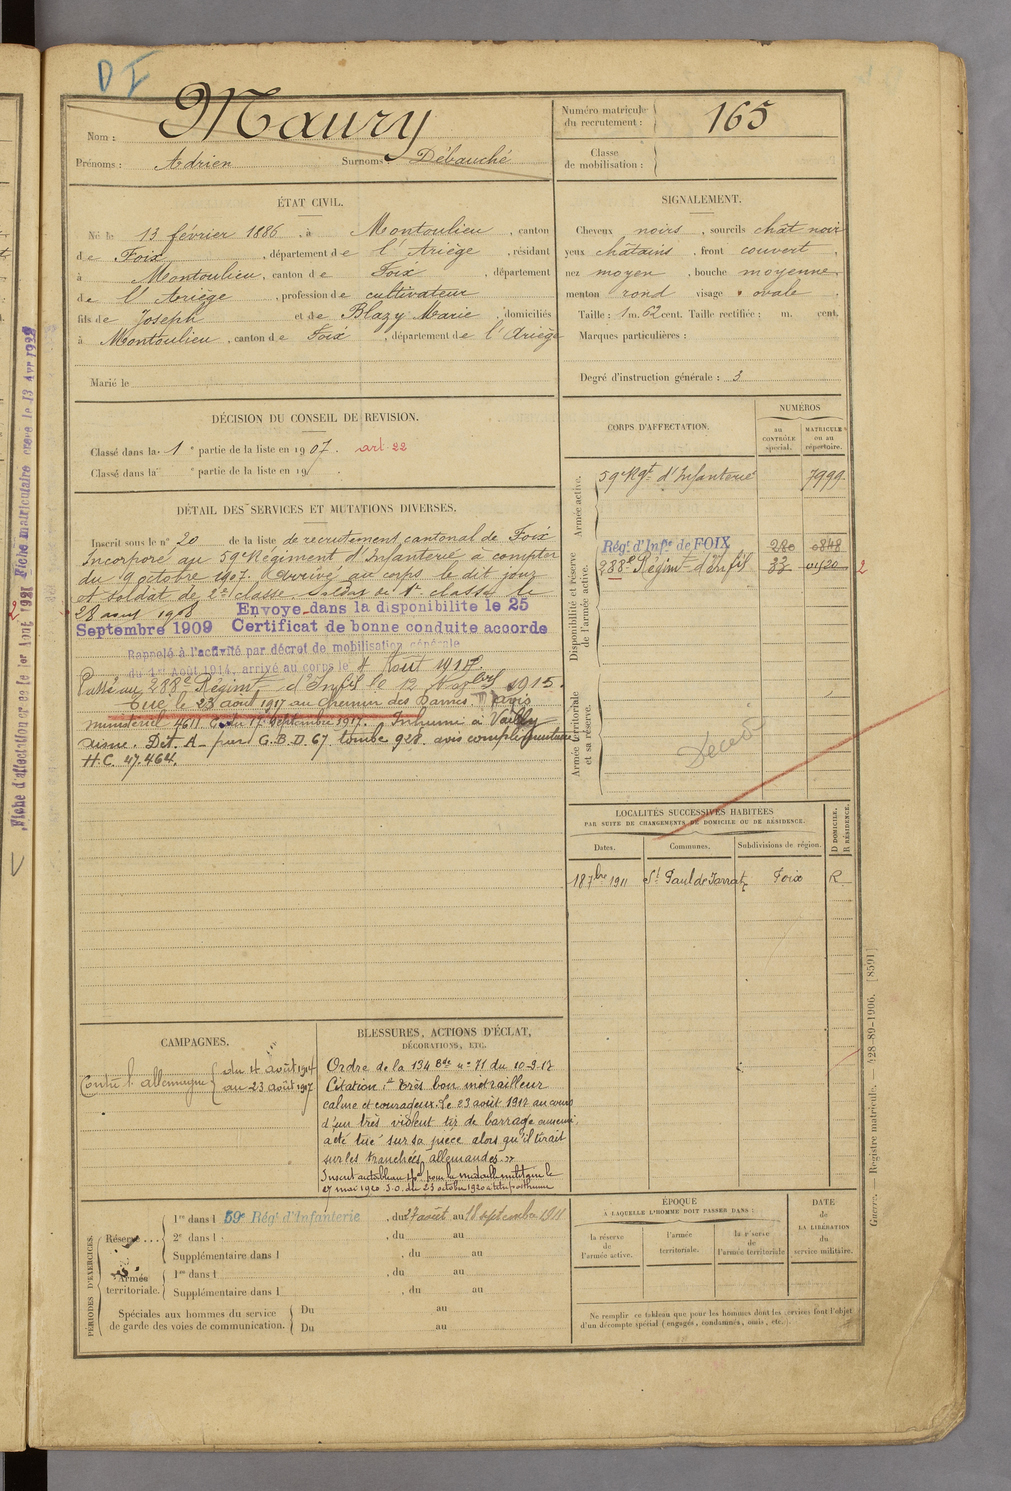 D I
Nom : Maury
Prénoms : Adrien Surnoms : Débauché
Numéro matricule du recrutement : 165
Classe de mobilisation :
ÉTAT CIVIL.
Né le 13 février 1886, à Montoulieu, canton
de Foix, département de l'Ariège, résidant
à Montoulieu, canton de Foix, département
de l'Ariège, profession de cultivateur
fils de Joseph et de Blazy Marie, domiciliés
à Montoulieu, canton de Foix, département de l'Ariège
Marié le
SIGNALEMENT.
Cheveux noirs, sourcils chât noir
yeux châtains, front couvert,
nez moyen, bouche moyenne,
menton rond visage ovale.
Taille : 1 m. 62 cent. Taille rectifiée : m. cent.
Marques particulières :
Degré d'instruction générale : 3
DÉCISION DU CONSEIL DE REVISION.
Classé dans la 1e partie de la liste en 1907. art 22
Classé dans la e partie de la liste en 19
DÉTAIL DES SERVICES ET MUTATIONS DIVERSES.
Inscrit sous le n° 20 de la liste de recrutement cantonal de Foix
Incorporé au 59e Régiment d'Infanterie à compter
du 9 octobre 1907. Arrivé au corps le dit jour
et soldat de 2e classe. Soldat de 1e classe le
28 août 1908 Envoyé dans la disponibilite le 25
Septembre 1909 Certificat de bonne conduite accorde
Rappelé à l'activité par décret de mobilisation générale
du 1er Août 1914, arrivé au corps le 4 Août 1914.
Passé au 288e Régimt d'Infie le 12 1915.
Tué le 23 août 1917 au Chemin des Dames. avis
ministériel 4611 du 17 septembre 1917. Inhumé à Vailly
Aisne. Dét. A G.B.D. 67 tombe 928. avis complémentaire
H.C. 47.464.
CORPS D'AFFECTATION.
NUMÉROS
au CONTRÔLE spécial.
MATRICULE ou au répertoire.
Armée active.
59e Rgt d'Infanterie 7999
Disponibilité et réserve de l'armée active.
Rég. d'Infie de FOIX 280 0848
288e Régimt d'Infie 33 01520 2
Armée territoriale et sa réserve.
Décédé
LOCALITÉS SUCCESSIVES HABITÉES
PAR SUITE DE CHANGEMENTS DE DOMICILE OU DE RÉSIDENCE.
Dates. Communes. Subdivisions de région. D DOMICILE. R RÉSIDENCE.
18 7bre 1911 St Paul de Jarrat Foix R
CAMPAGNES.
Contre l'allemagne du 4 août 1914
au 23 août 1917
BLESSURES, ACTIONS D'ÉCLAT,
DÉCORATIONS, ETC.
Ordre de la 134 Bde n° 71 du 10-9-17
Citation : "très bon mitrailleur
calme et courageux. Le 23 août 1917 au cours
d'un très violent tir de barrage ennemi,
a été tué sur sa pièce alors qu'il tirait
sur les tranchées allemandes."
Inscrit au tableau pour la médaille militaire le
27 mai 1920 J.O. du 23 octobre 1920 à titre posthume
PÉRIODES D'EXERCICES.
Réserve... 1re dans l 59e Rég. d'Infanterie, du 27 août au 18 septembre 1911
2e dans l , du au
Supplémentaire dans l , du au
Armée territoriale. 1re dans l , du au
Supplémentaire dans l , du au
Spéciales aux hommes du service Du au
de garde des voies de communication. Du au
ÉPOQUE
À LAQUELLE L'HOMME DOIT PASSER DANS :
la réserve de l'armée active.
l'armée territoriale.
la réserve de l'armée territoriale
DATE de LA LIBÉRATION du service militaire.
Ne remplir ce tableau que pour les hommes dont les services font l'objet
d'un décompte spécial (engagés, condamnés, omis, etc.)
Guerre. — Registre matricule. — 428-89-1906. [8591]
Fiche d'affectation creee le 1er Aout 1921 Fiche matriculaire creee le 13 Avr 1922
2